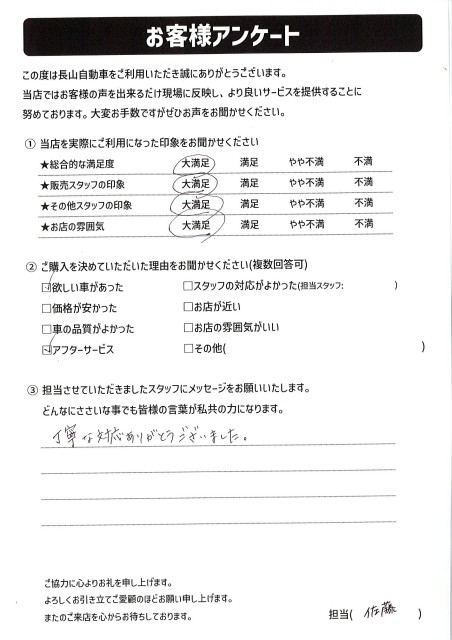 お客様アンケート
この度は長山自動車をご利用いただき誠にありがとうございます。
当店ではお客様の声を出来るだけ現場に反映し、より良いサービスを提供することに
努めております。大変お手数ですがぜひお声をお聞かせください。
① 当店を実際にご利用になった印象をお聞かせください
★総合的な満足度 大満足 満足 やや不満 不満
★販売スタッフの印象 大満足 満足 やや不満 不満
★その他スタッフの印象 大満足 満足 やや不満 不満
★お店の雰囲気 大満足 満足 やや不満 不満
② ご購入を決めていただいた理由をお聞かせください(複数回答可)
☑欲しい車があった □スタッフの対応がよかった(担当スタッフ: )
□価格が安かった □お店が近い
□車の品質がよかった □お店の雰囲気がいい
☑アフターサービス □その他( )
③ 担当させていただきましたスタッフにメッセージをお願いいたします。
どんなにささいな事でも皆様の言葉が私共の力になります。
丁寧な対応ありがとうございました。
ご協力に心よりお礼を申し上げます。
よろしくお引き立てご愛顧のほどお願い申し上げます。
またのご来店を心からお待ちしております。
担当( 佐藤 )